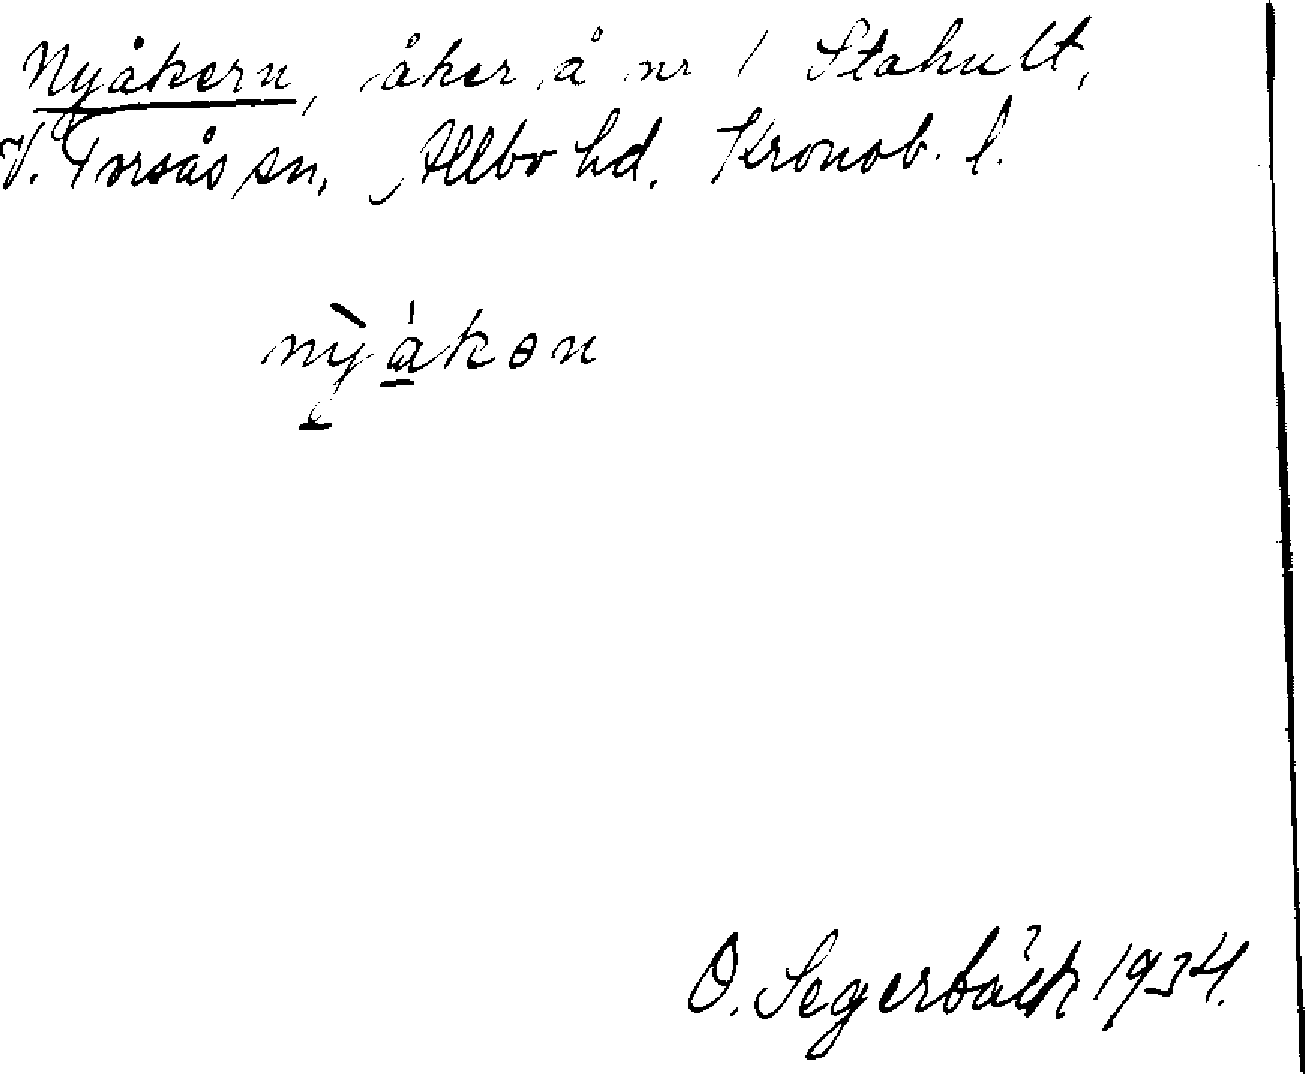 Nyåkern, åker å nr 1 Stahult,
V. Torsås sn, Allbo hd. Kronob. l.
nỳákən
O. Segerbäck 1934.